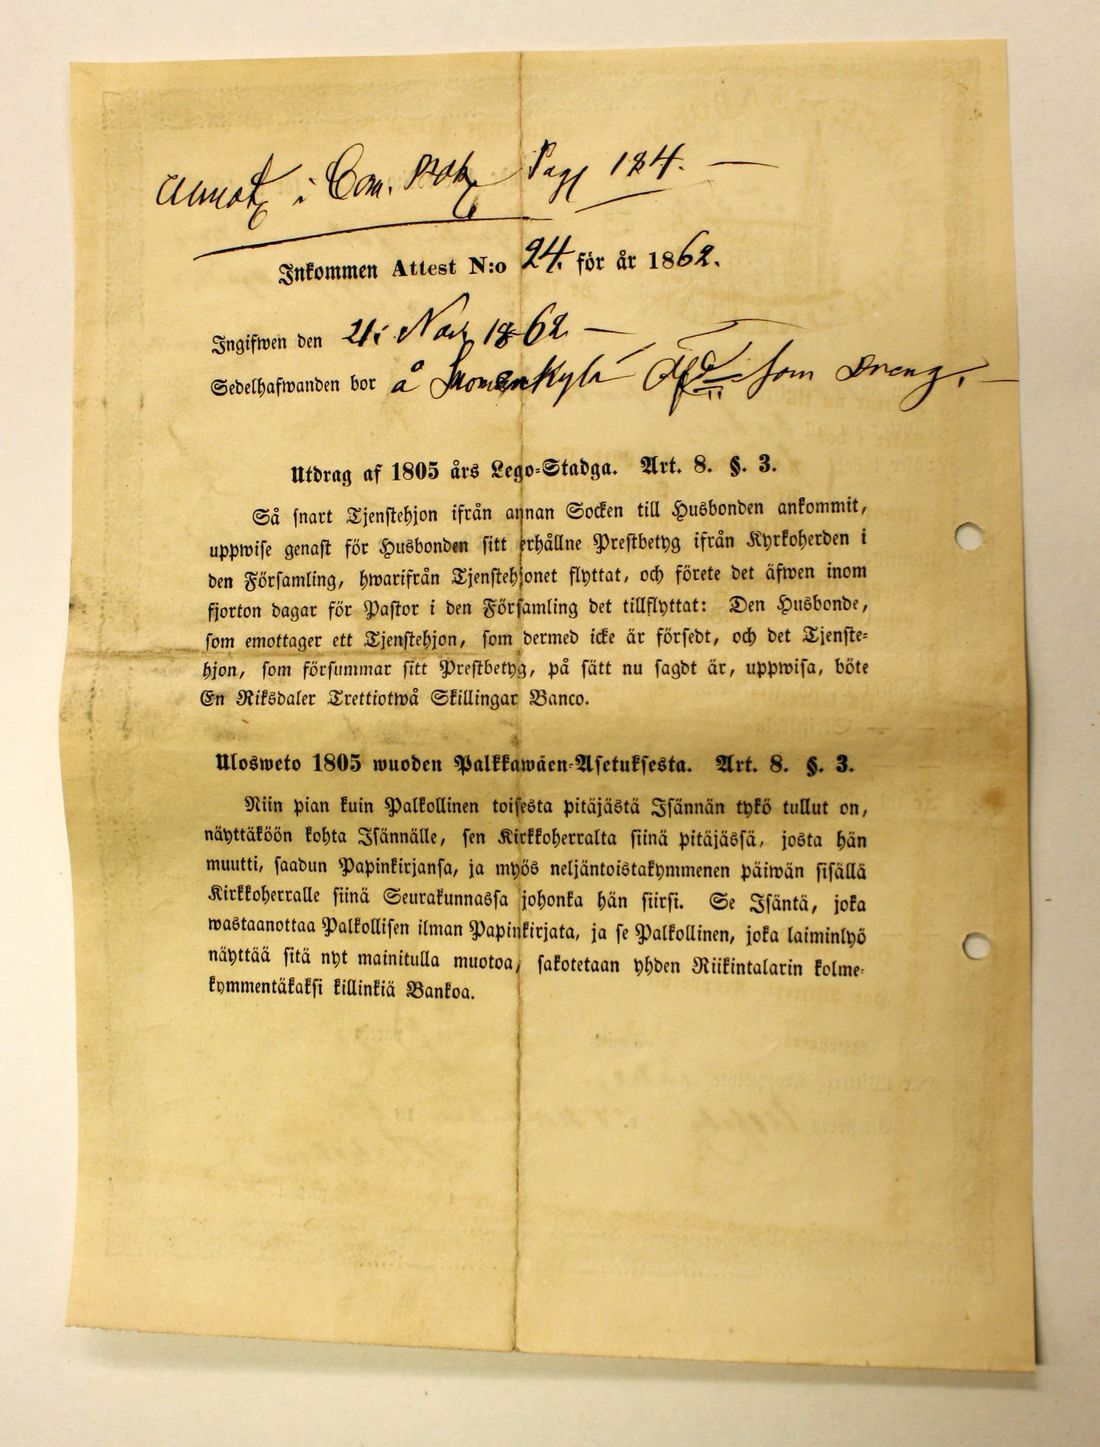 i Com. Pag 184. —
Inkommen Attest N:o 24. för år 1862.
Ingifwen den 21. Nov 1862 —
Sedelhafwanden bor å Suomenkylä som dreng. —
Utdrag af 1805 års Lego-Stadga. Art. 8. §. 3.
Så snart Tjenstehjon ifrån annan Socken till Husbonden ankommit,
uppwise genast för Husbonden sitt erhållne Prestbetyg ifrån Kyrkoherden i
den Församling, hwarifrån Tjenstehjonet flyttat, och förete det äfwen inom
fjorton dagar för Pastor i den Församling det tillflyttat: Den Husbonde,
som emottager ett Tjenstehjon, som dermed icke är försedt, och det Tjenste-
hjon, som försummar sitt Prestbetyg, på sätt nu sagdt är, uppwisa, böte
En Riksdaler Trettiotwå Skillingar Banco.
Ulosweto 1805 wuoden Palkkawäen-Asetuksesta. Art. 8. §. 3.
Niin pian kuin Palkollinen toisesta pitäjästä Isännän tykö tullut on,
näyttäköön kohta Isännälle, sen Kirkkoherralta siinä pitäjässä, josta hän
muutti, saadun Papinkirjansa, ja myös neljäntoistakymmenen päiwän sisällä
Kirkkoherralle siinä Seurakunnassa johonka hän siirsi. Se Isäntä, joka
wastaanottaa Palkollisen ilman Papinkirjata, ja se Palkollinen, joka laiminlyö
näyttää sitä nyt mainitulla muotoa, sakotetaan yhden Riikintalarin kolme-
kymmentäkaksi killinkiä Bankoa.